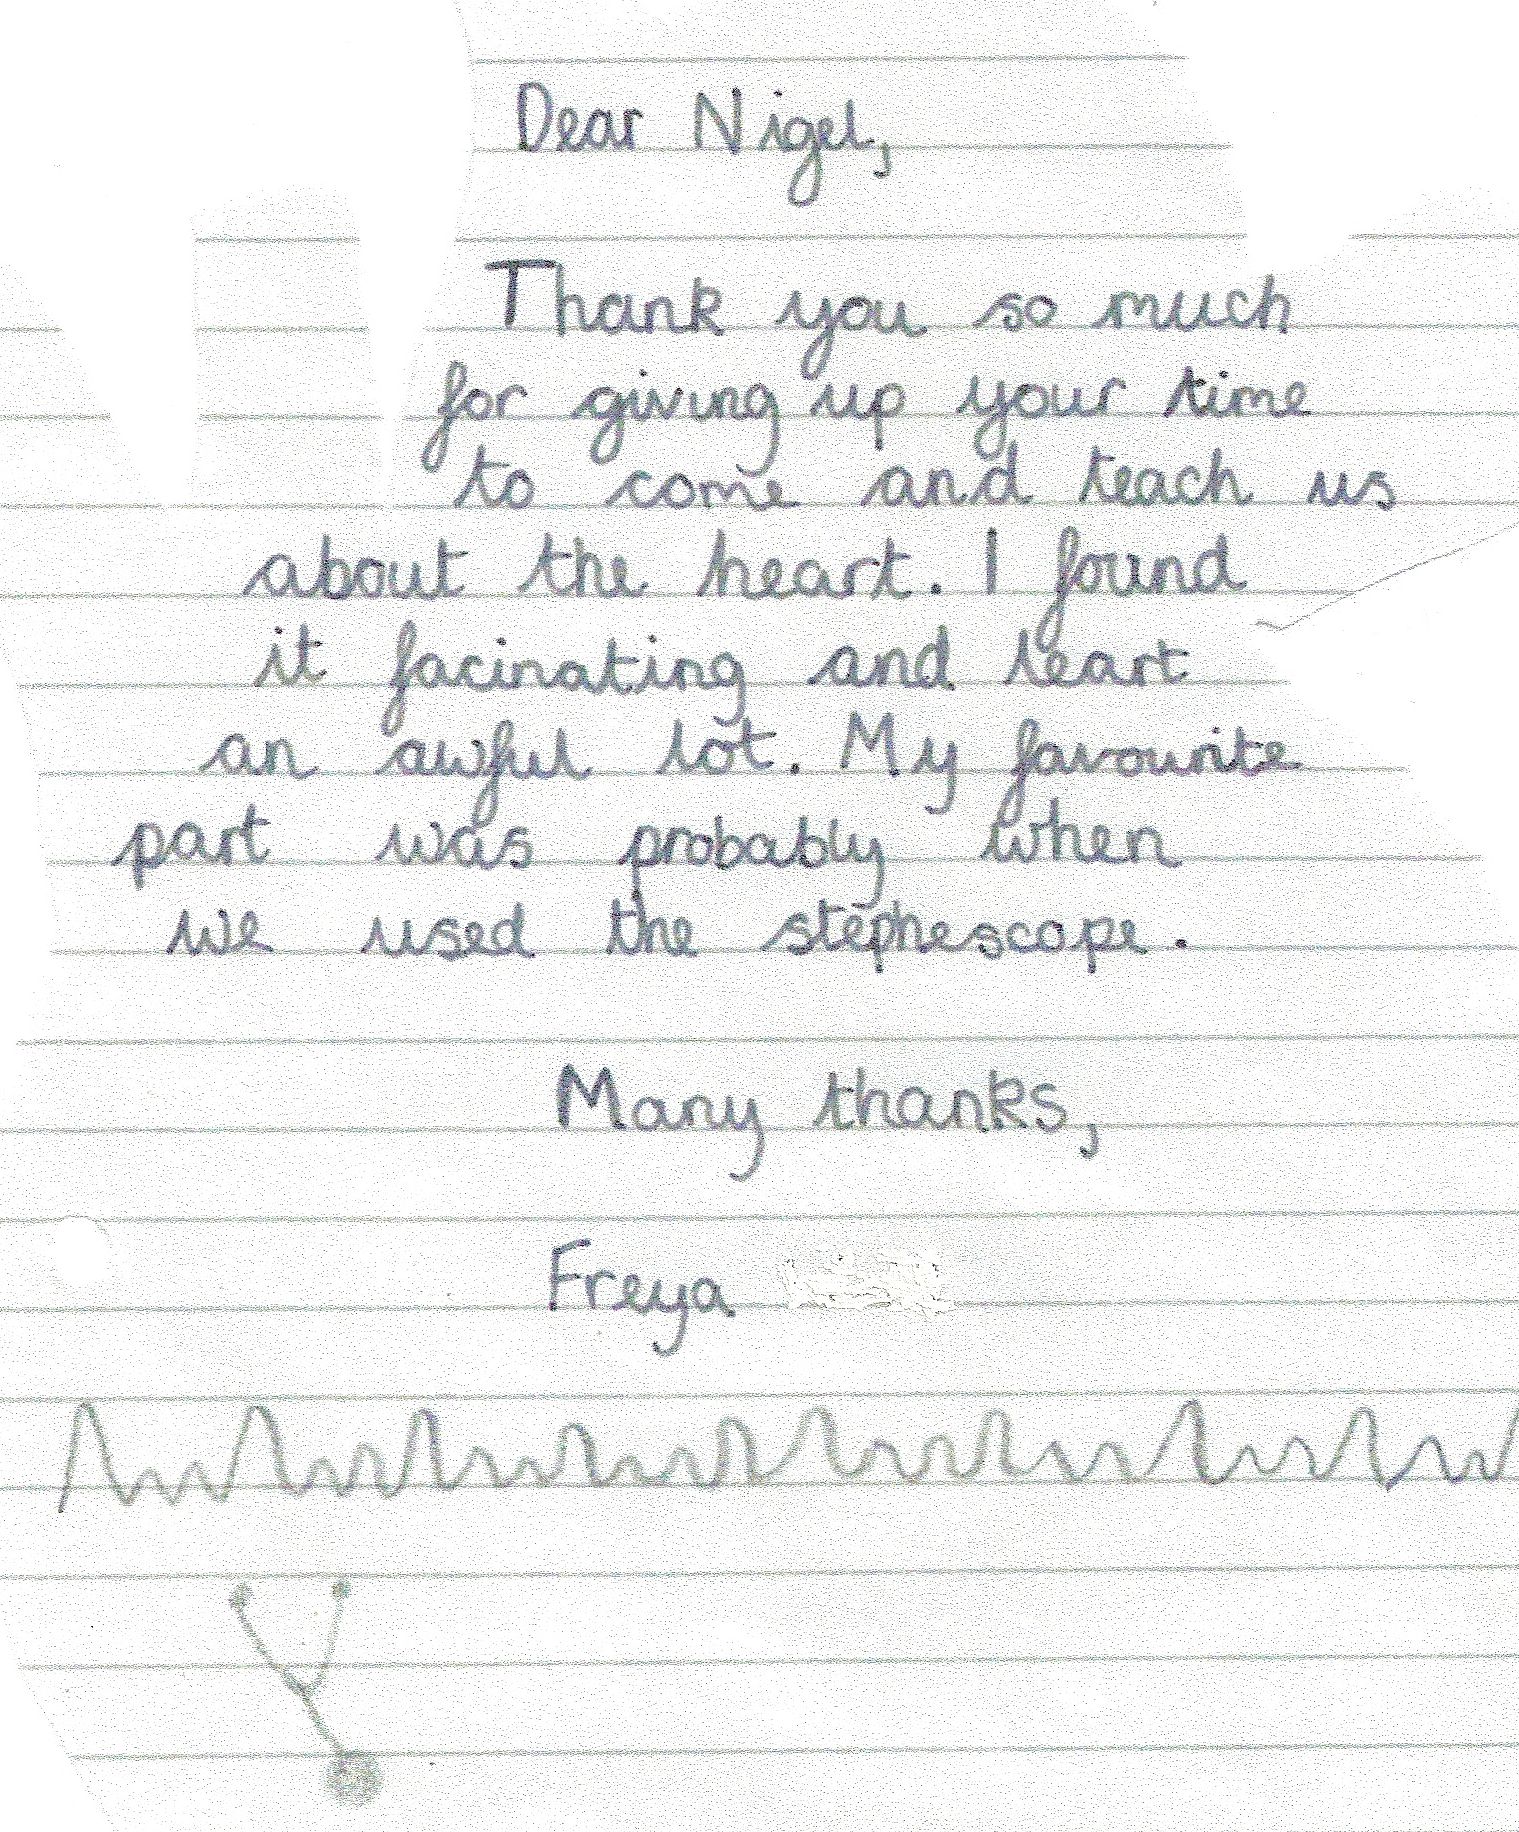 Dear Nigel,
Thank you so much
for giving up your time
to come and teach us
about the heart. I found
it facinating and leart
an awful lot. My favourite
part was probably when
we used the stephescope.
Many thanks,
Freya